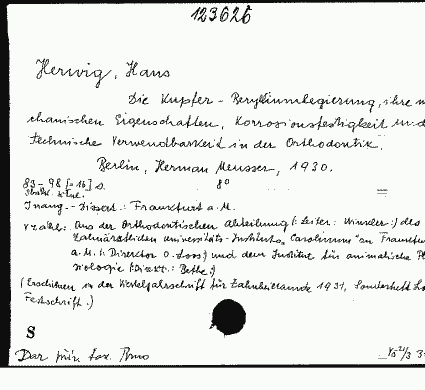 123626
Herwig, Hans
Die Kupfer-Berylliumlegierung, ihre m
chanischen Eigenschaften, Korrosionsfestigkeit und
technische Verwendbarkeit in der Orthodontik.
Berlin, Herman Meusser, 1930.
83-98 [=16] S. 8°
Inaug.-Dissert.: Frankfurt a. M.
Aus der Orthodontischen Abteilung (: Leiter: Winkler:) des
Zahnärztlichen Universitäts-Instituts „Carolinum" zu Frankfur
a. M. (: Direktor O. Loos) und dem Institut für animalische Ph
siologie (: Direkt.: Bethe:)
(Erschienen in der Vierteljahrsschrift für Zahnheilkunde 1931, Sonderheft Lo
Festschrift.)
S